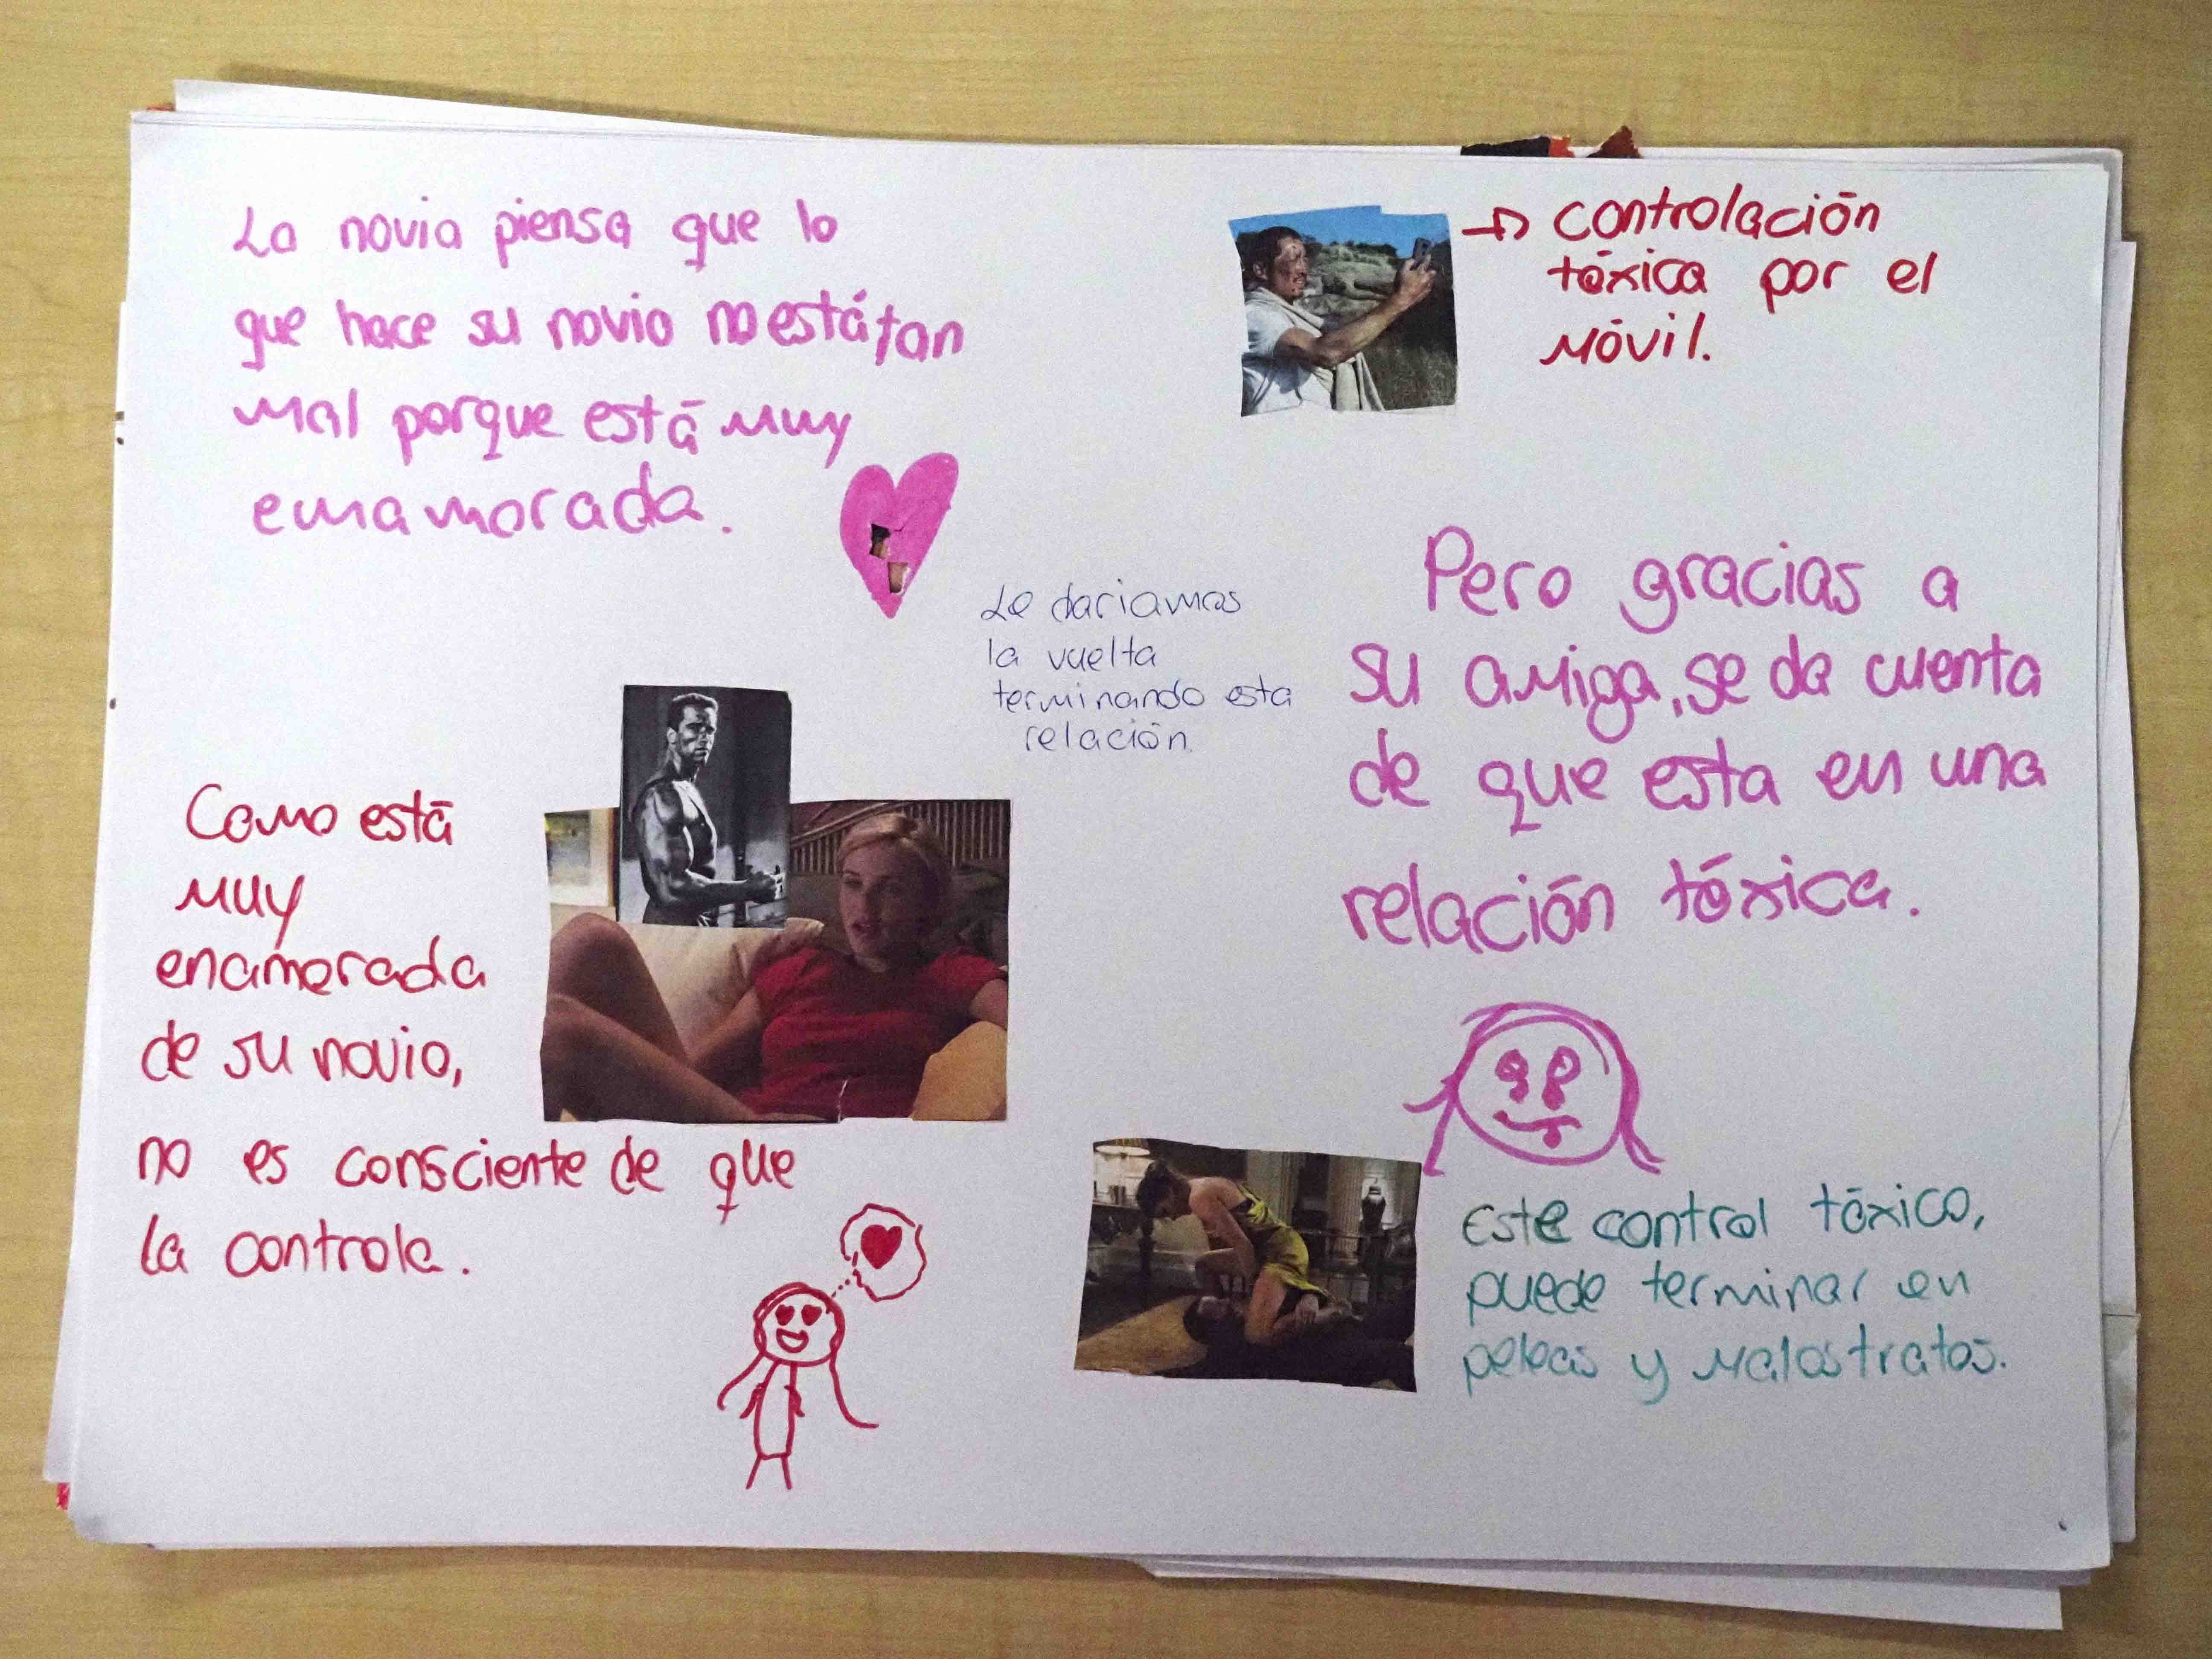 La novia piensa que lo
que hace su novio no está tan
mal porque está muy
enamorada.
controlación
tóxica por el
móvil.
Le dariamos
la vuelta
terminando esta
relación.
Pero gracias a
su amiga, se da cuenta
de que esta en una
relación tóxica.
Como está
muy
enamorada
de su novio,
no es consciente de que
la controla.
Este control tóxico,
puede terminar en
peleas y malos tratos.